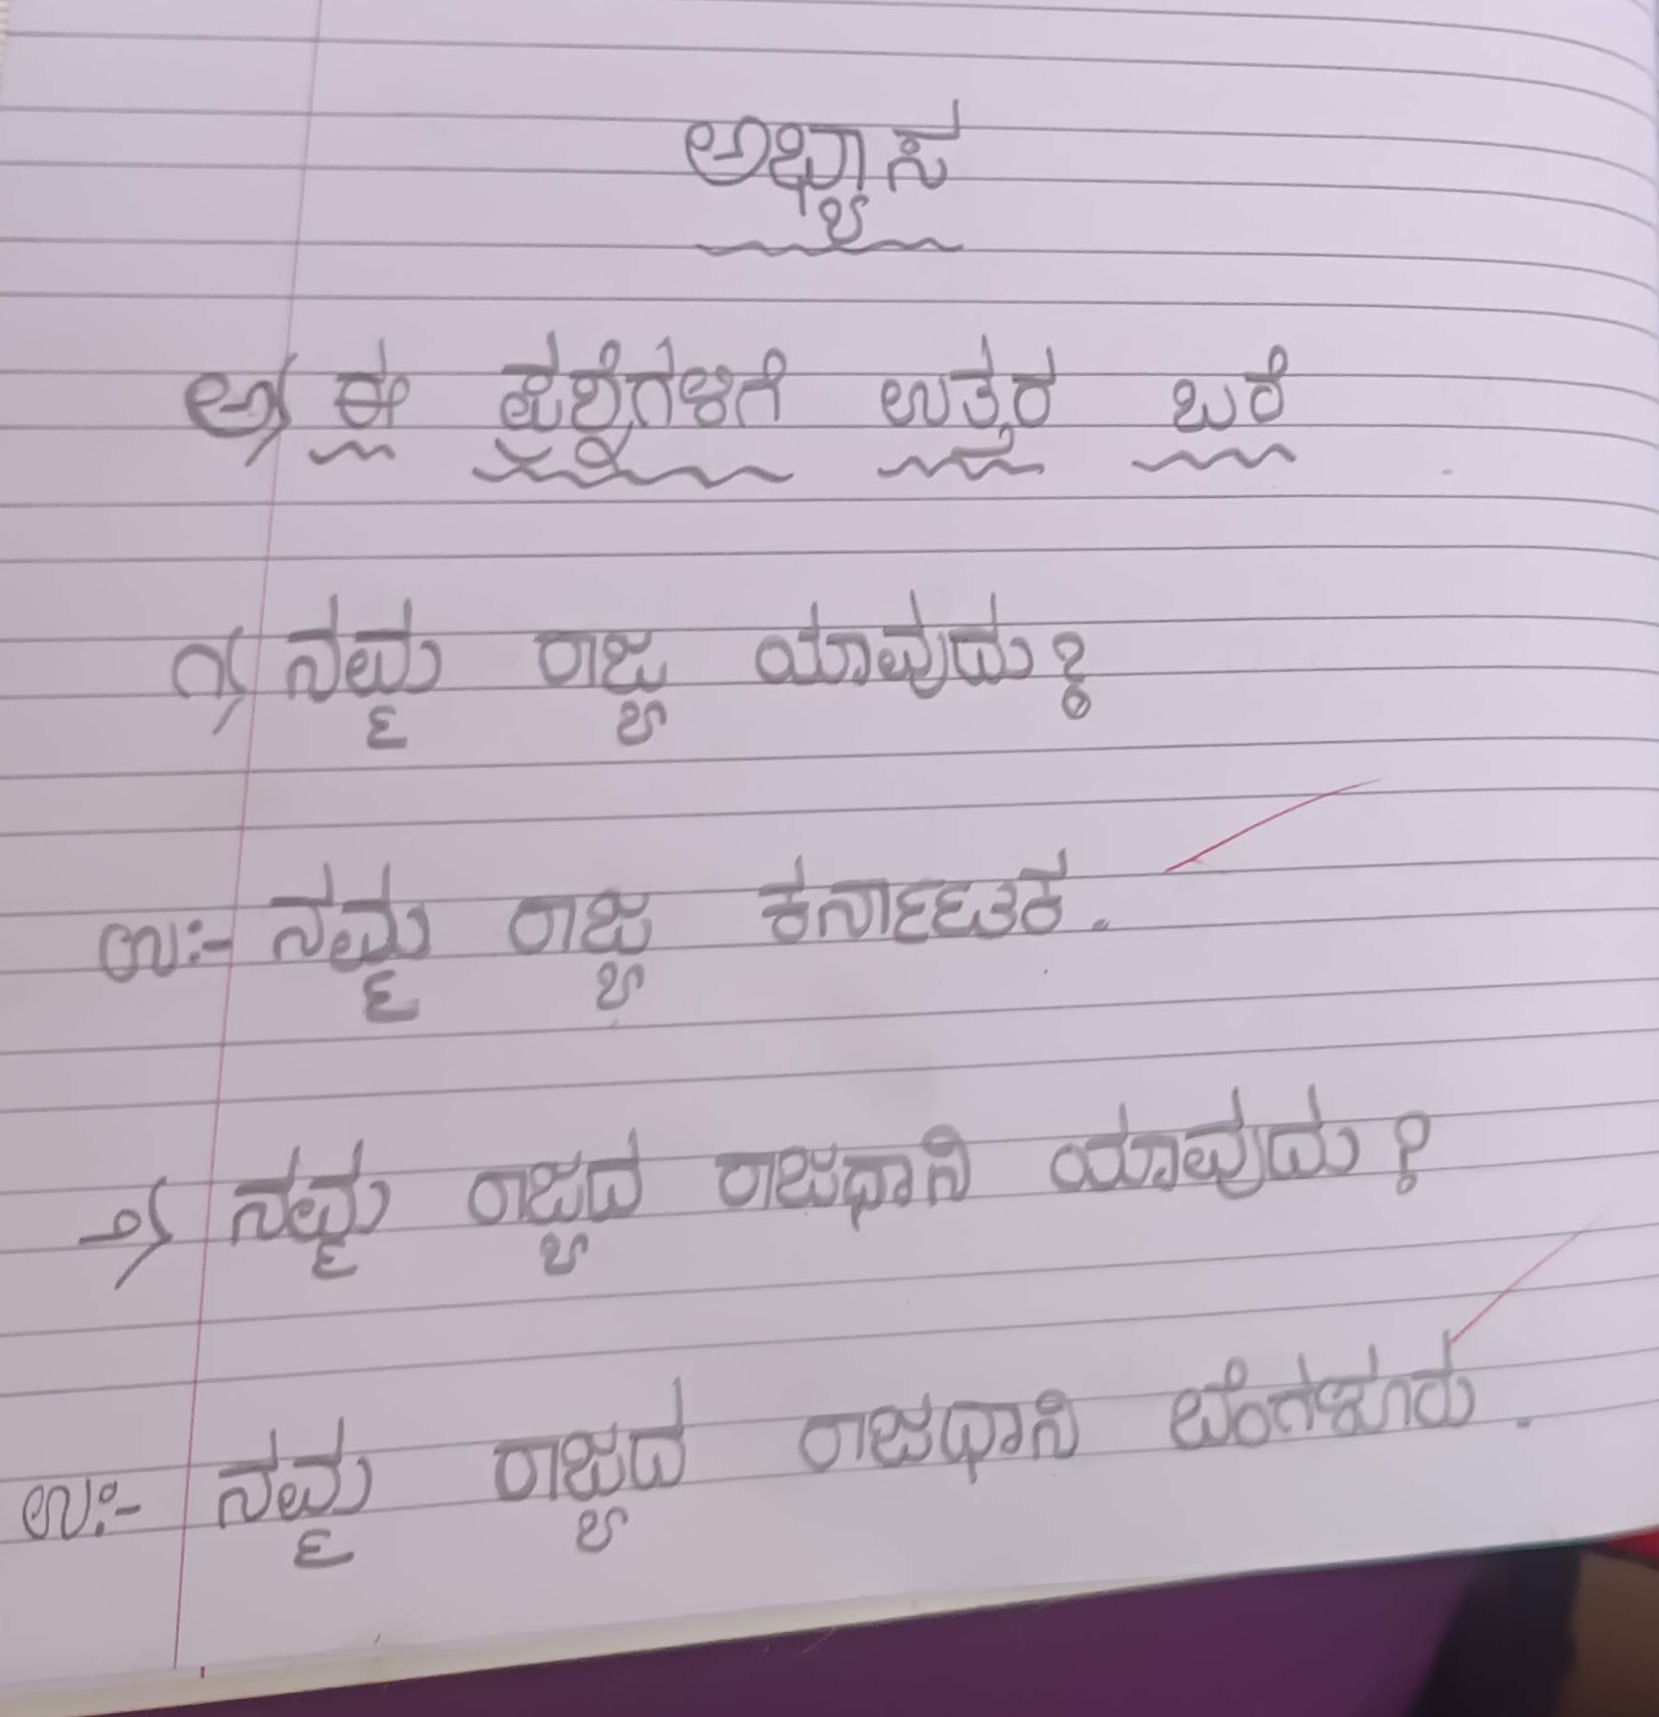 ಅಭ್ಯಾಸ
ಅ) ಈ ಪ್ರಶ್ನೆಗಳಿಗೆ ಉತ್ತರ ಬರೆ
೧) ನಮ್ಮ ರಾಜ್ಯ ಯಾವುದು?
ಉ:- ನಮ್ಮ ರಾಜ್ಯ ಕರ್ನಾಟಕ.
೨) ನಮ್ಮ ರಾಜ್ಯದ ರಾಜಧಾನಿ ಯಾವುದು?
ಉ:- ನಮ್ಮ ರಾಜ್ಯದ ರಾಜಧಾನಿ ಬೆಂಗಳೂರು.